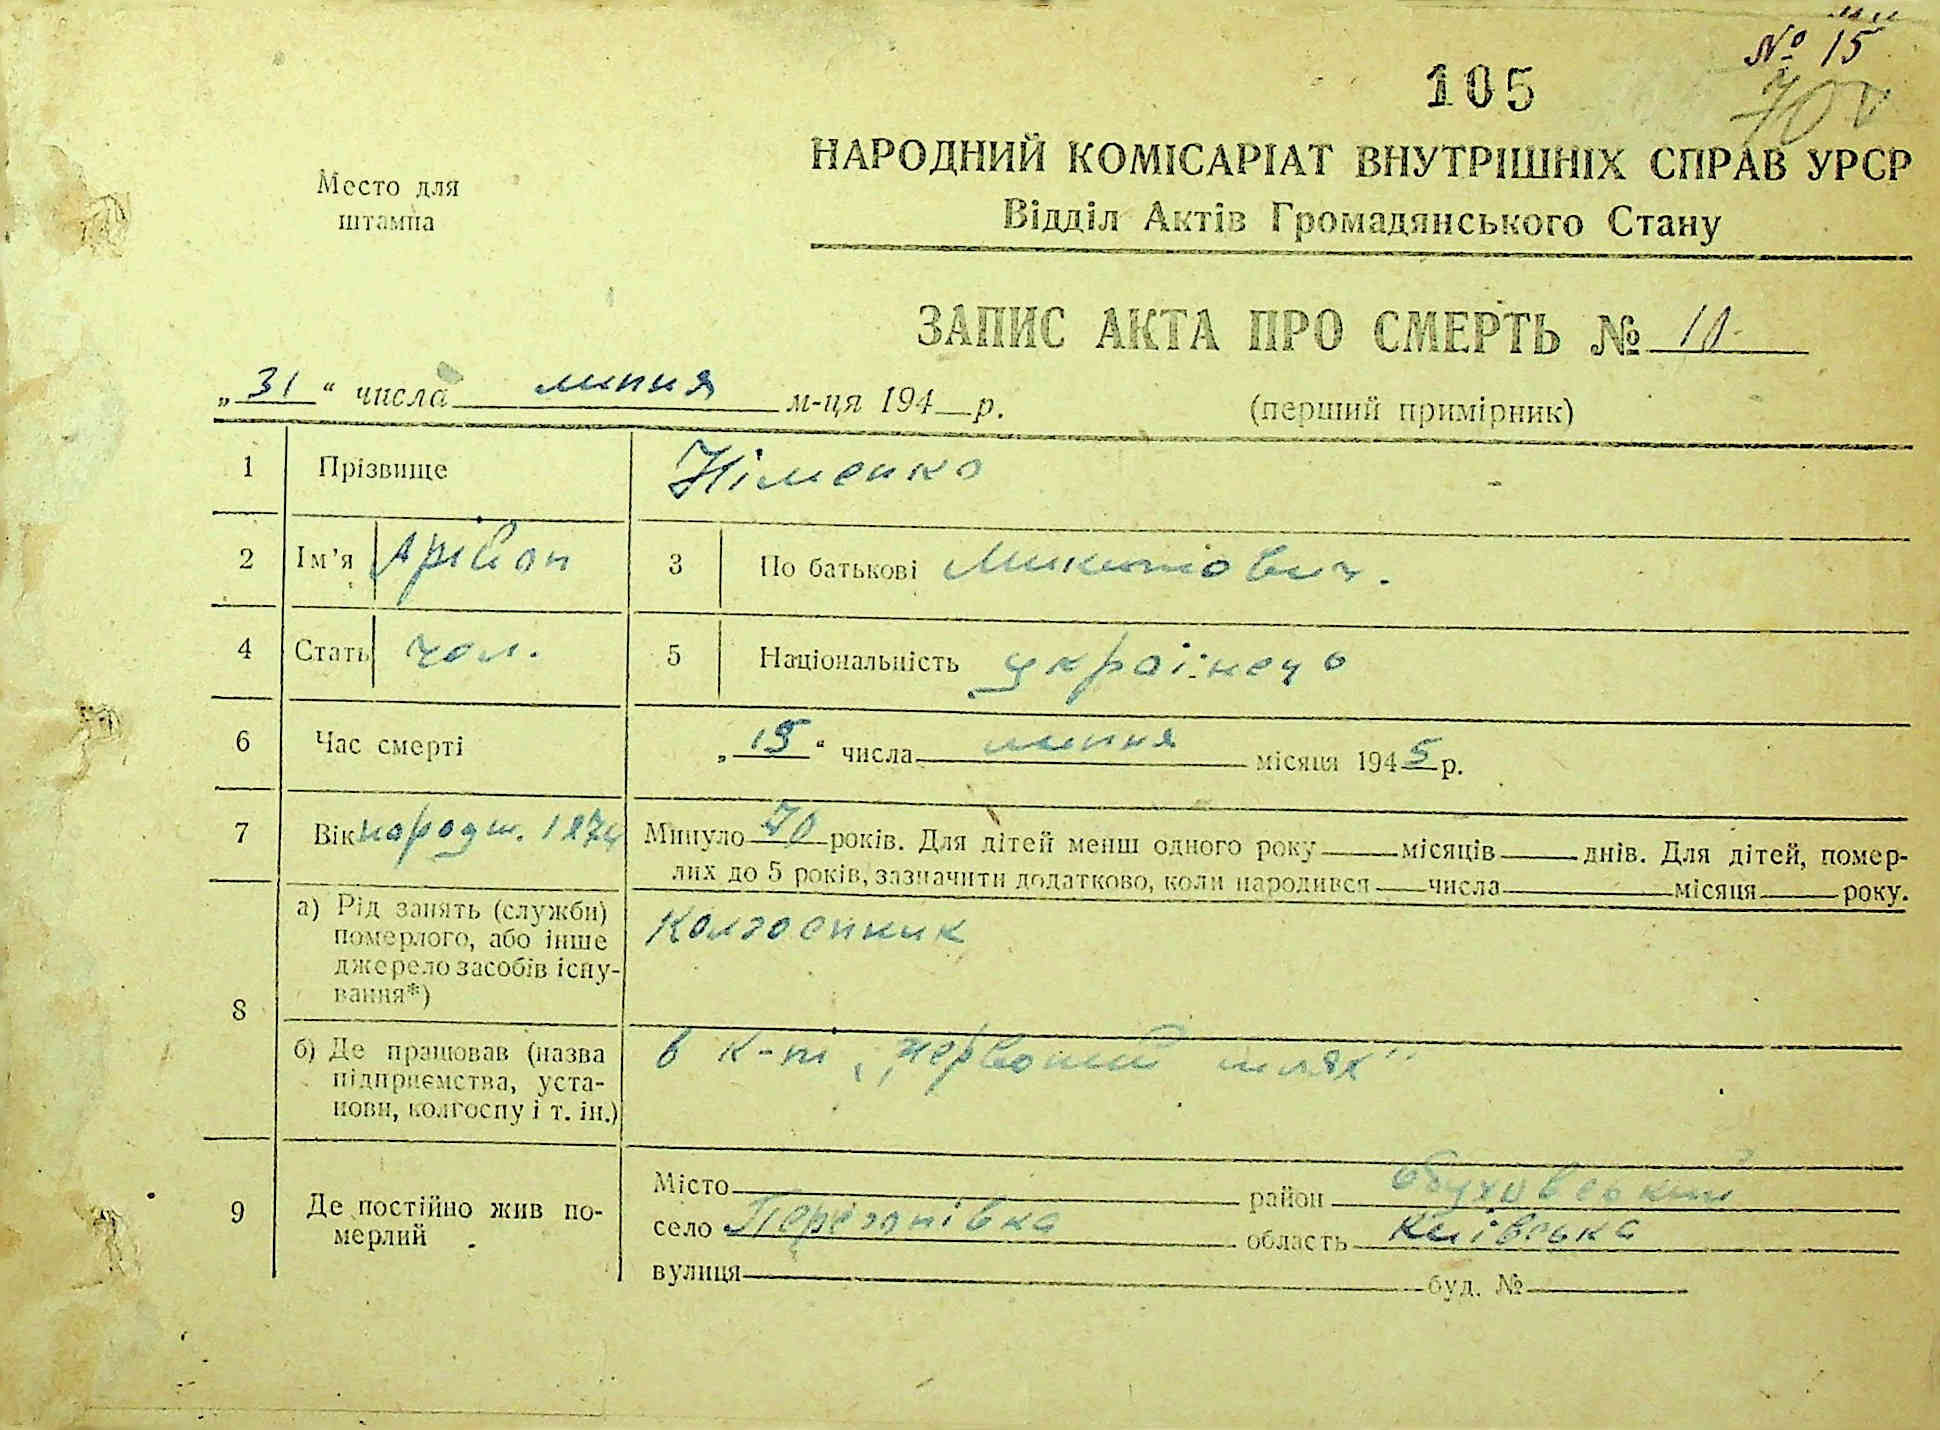 № 15
70
105
Место для
штампа
НАРОДНИЙ КОМІСАРІАТ ВНУТРІШНІХ СПРАВ УРСР
Відділ Актів Громадянського Стану
ЗАПИС АКТА ПРО СМЕРТЬ № 10
„31“ числа липня м-ця 194 р.
(перший примірник)
1 Прізвище Німенко
2 Ім'я Арівон 3 По батькові Микитович.
4 Стать чол. 5 Національність українець
6 Час смерті „15“ числа липня місяця 1945 р.
7 Вік народж. 1874 Минуло 70 років. Для дітей менш одного року місяців днів. Для дітей, помер-
лих до 5 років, зазначити додатково, коли народився числа місяця року.
8 а) Рід занять (служби)
померлого, або інше
джерело засобів існу-
вання*)
Колгоспник
б) Де працював (назва
підприємства, уста-
нови, колгоспу і т. ін.)
в к-пі „Червоний шлях"
9 Де постійно жив по-
мерлий
Місто район Обуховський
село Перегонівка область Київська
вулиця буд. №